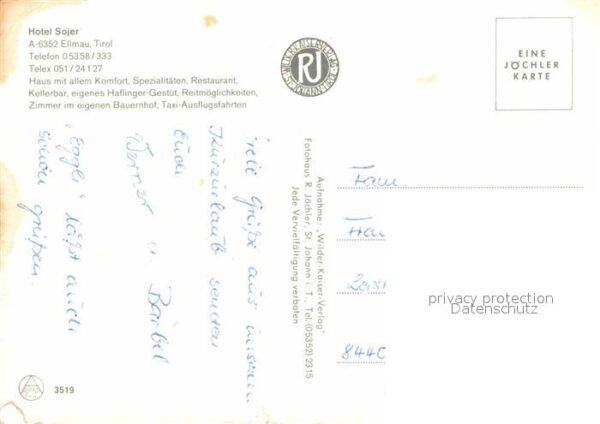 Hotel Sojer
A-6352 Ellmau, Tirol
Telefon 05358/333
Telex 051/24127
Haus mit allem Komfort, Spezialitäten, Restaurant,
Kellerbar, eigenes Haflinger-Gestüt, Reitmöglichkeiten,
Zimmer im eigenen Bauernhof, Taxi-Ausflugsfahrten
RJ
EINE
JÖCHLER
KARTE
viele Grüße aus unserem
Kurzurlaub senden
Euch
Werner u. Bärbel
"Eggli" läßt auch
schön grüßen.
Aufnahme: „Wilder-Kaiser-Verlag"
Fotohaus R. Jöchler, St. Johann i. T., Tel. (05352) 2315
Jede Vervielfältigung verboten
Fam.
844
privacy protection
Datenschutz
3519